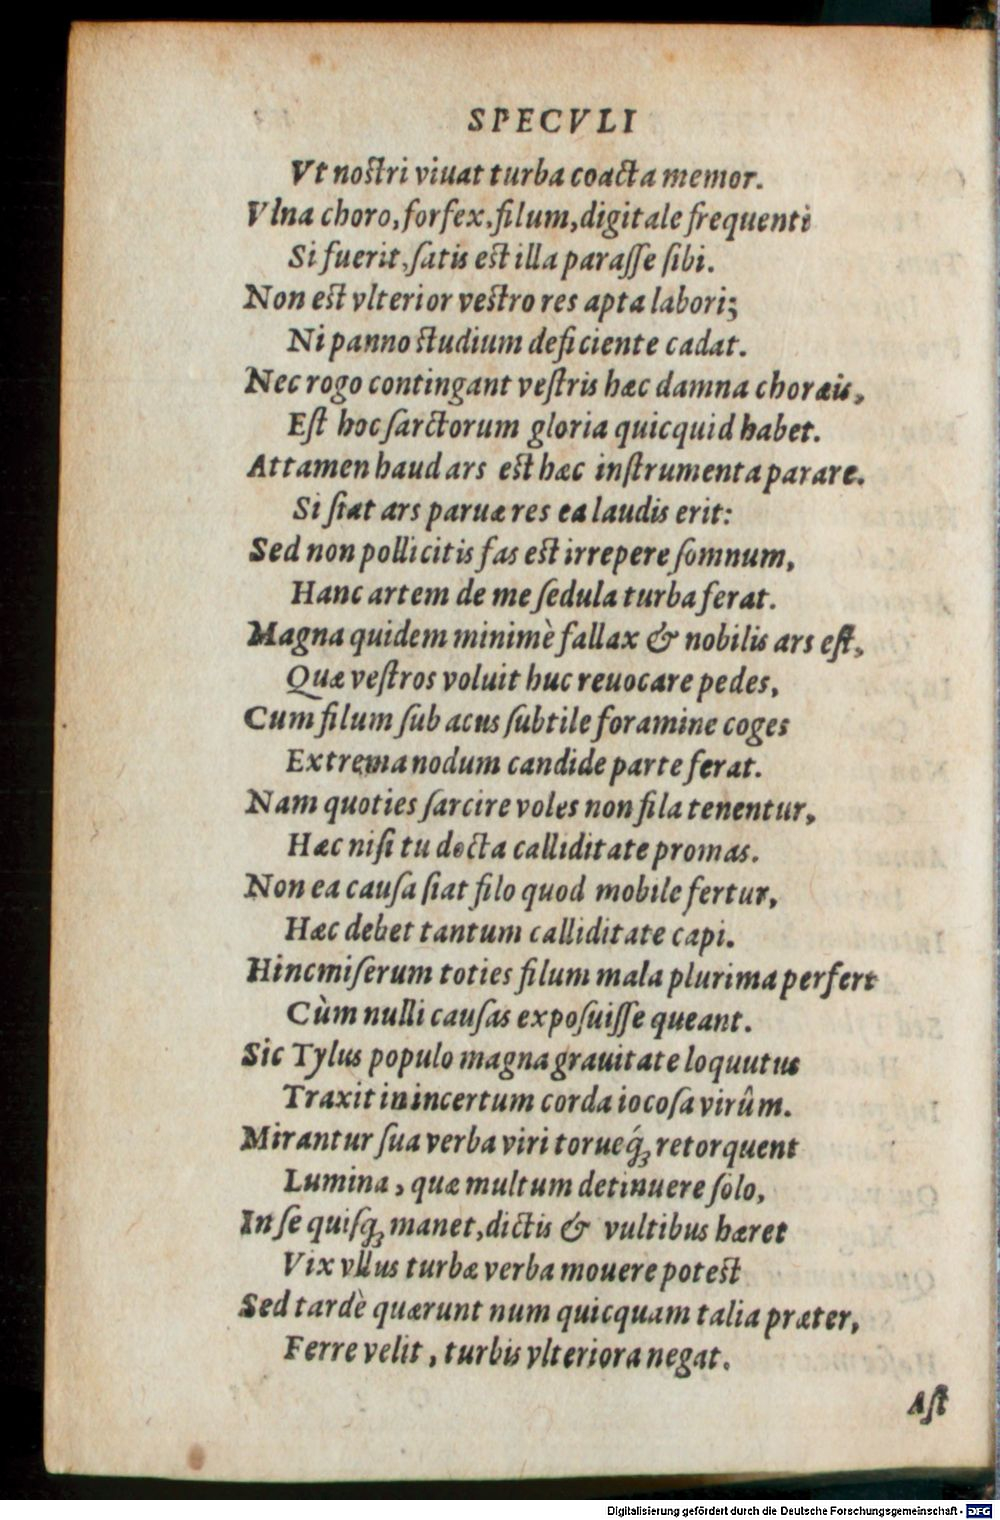 SPECVLI
Vt noſtri viuat turba coacta memor.
Vlna choro, forfex, filum, digitale frequenti
Si fuerit, ſatis eſt illa paraſſe ſibi.
Non eſt vlterior veſtro res apta labori;
Ni panno ſtudium deficiente cadat.
Nec rogo contingant veſtris hæc damna choræis,
Eſt hoc ſarctorum gloria quicquid habet.
Attamen haud ars eſt hæc inſtrumenta parare.
Si fiat ars paruæ res ea laudis erit:
Sed non pollicitis fas eſt irrepere ſomnum,
Hanc artem de me ſedula turba ferat.
Magna quidem minimè fallax & nobilis ars eſt,
Quæ veſtros voluit huc reuocare pedes,
Cum filum ſub acus ſubtile foramine coges
Extrema nodum candide parte ferat.
Nam quoties ſarcire voles non fila tenentur,
Hæc niſi tu docta calliditate promas.
Non ea cauſa fiat filo quod mobile fertur,
Hæc debet tantum calliditate capi.
Hinc miſerum toties filum mala plurima perfert
Cùm nulli cauſas expoſuiſſe queant.
Sic Tylus populo magna grauitate loquutus
Traxit in incertum corda iocoſa virûm.
Mirantur ſua verba viri torueq́ꝫ retorquent
Lumina, quæ multum detinuere ſolo,
In ſe quiſqꝫ manet, dictis & vultibus hæret
Vix vllus turbæ verba mouere poteſt
Sed tardè quærunt num quicquam talia præter,
Ferre velit, turbis vlteriora negat.
Aſt
Digitalisierung gefördert durch die Deutsche Forschungsgemeinschaft - DFG